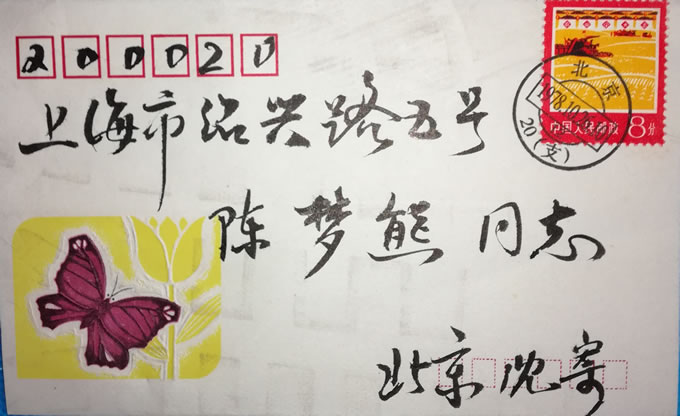 200020
上海市绍兴路五号
陈梦熊同志
北京沈寄
中国人民邮政 8分
北京
1978.10.26
20(支)